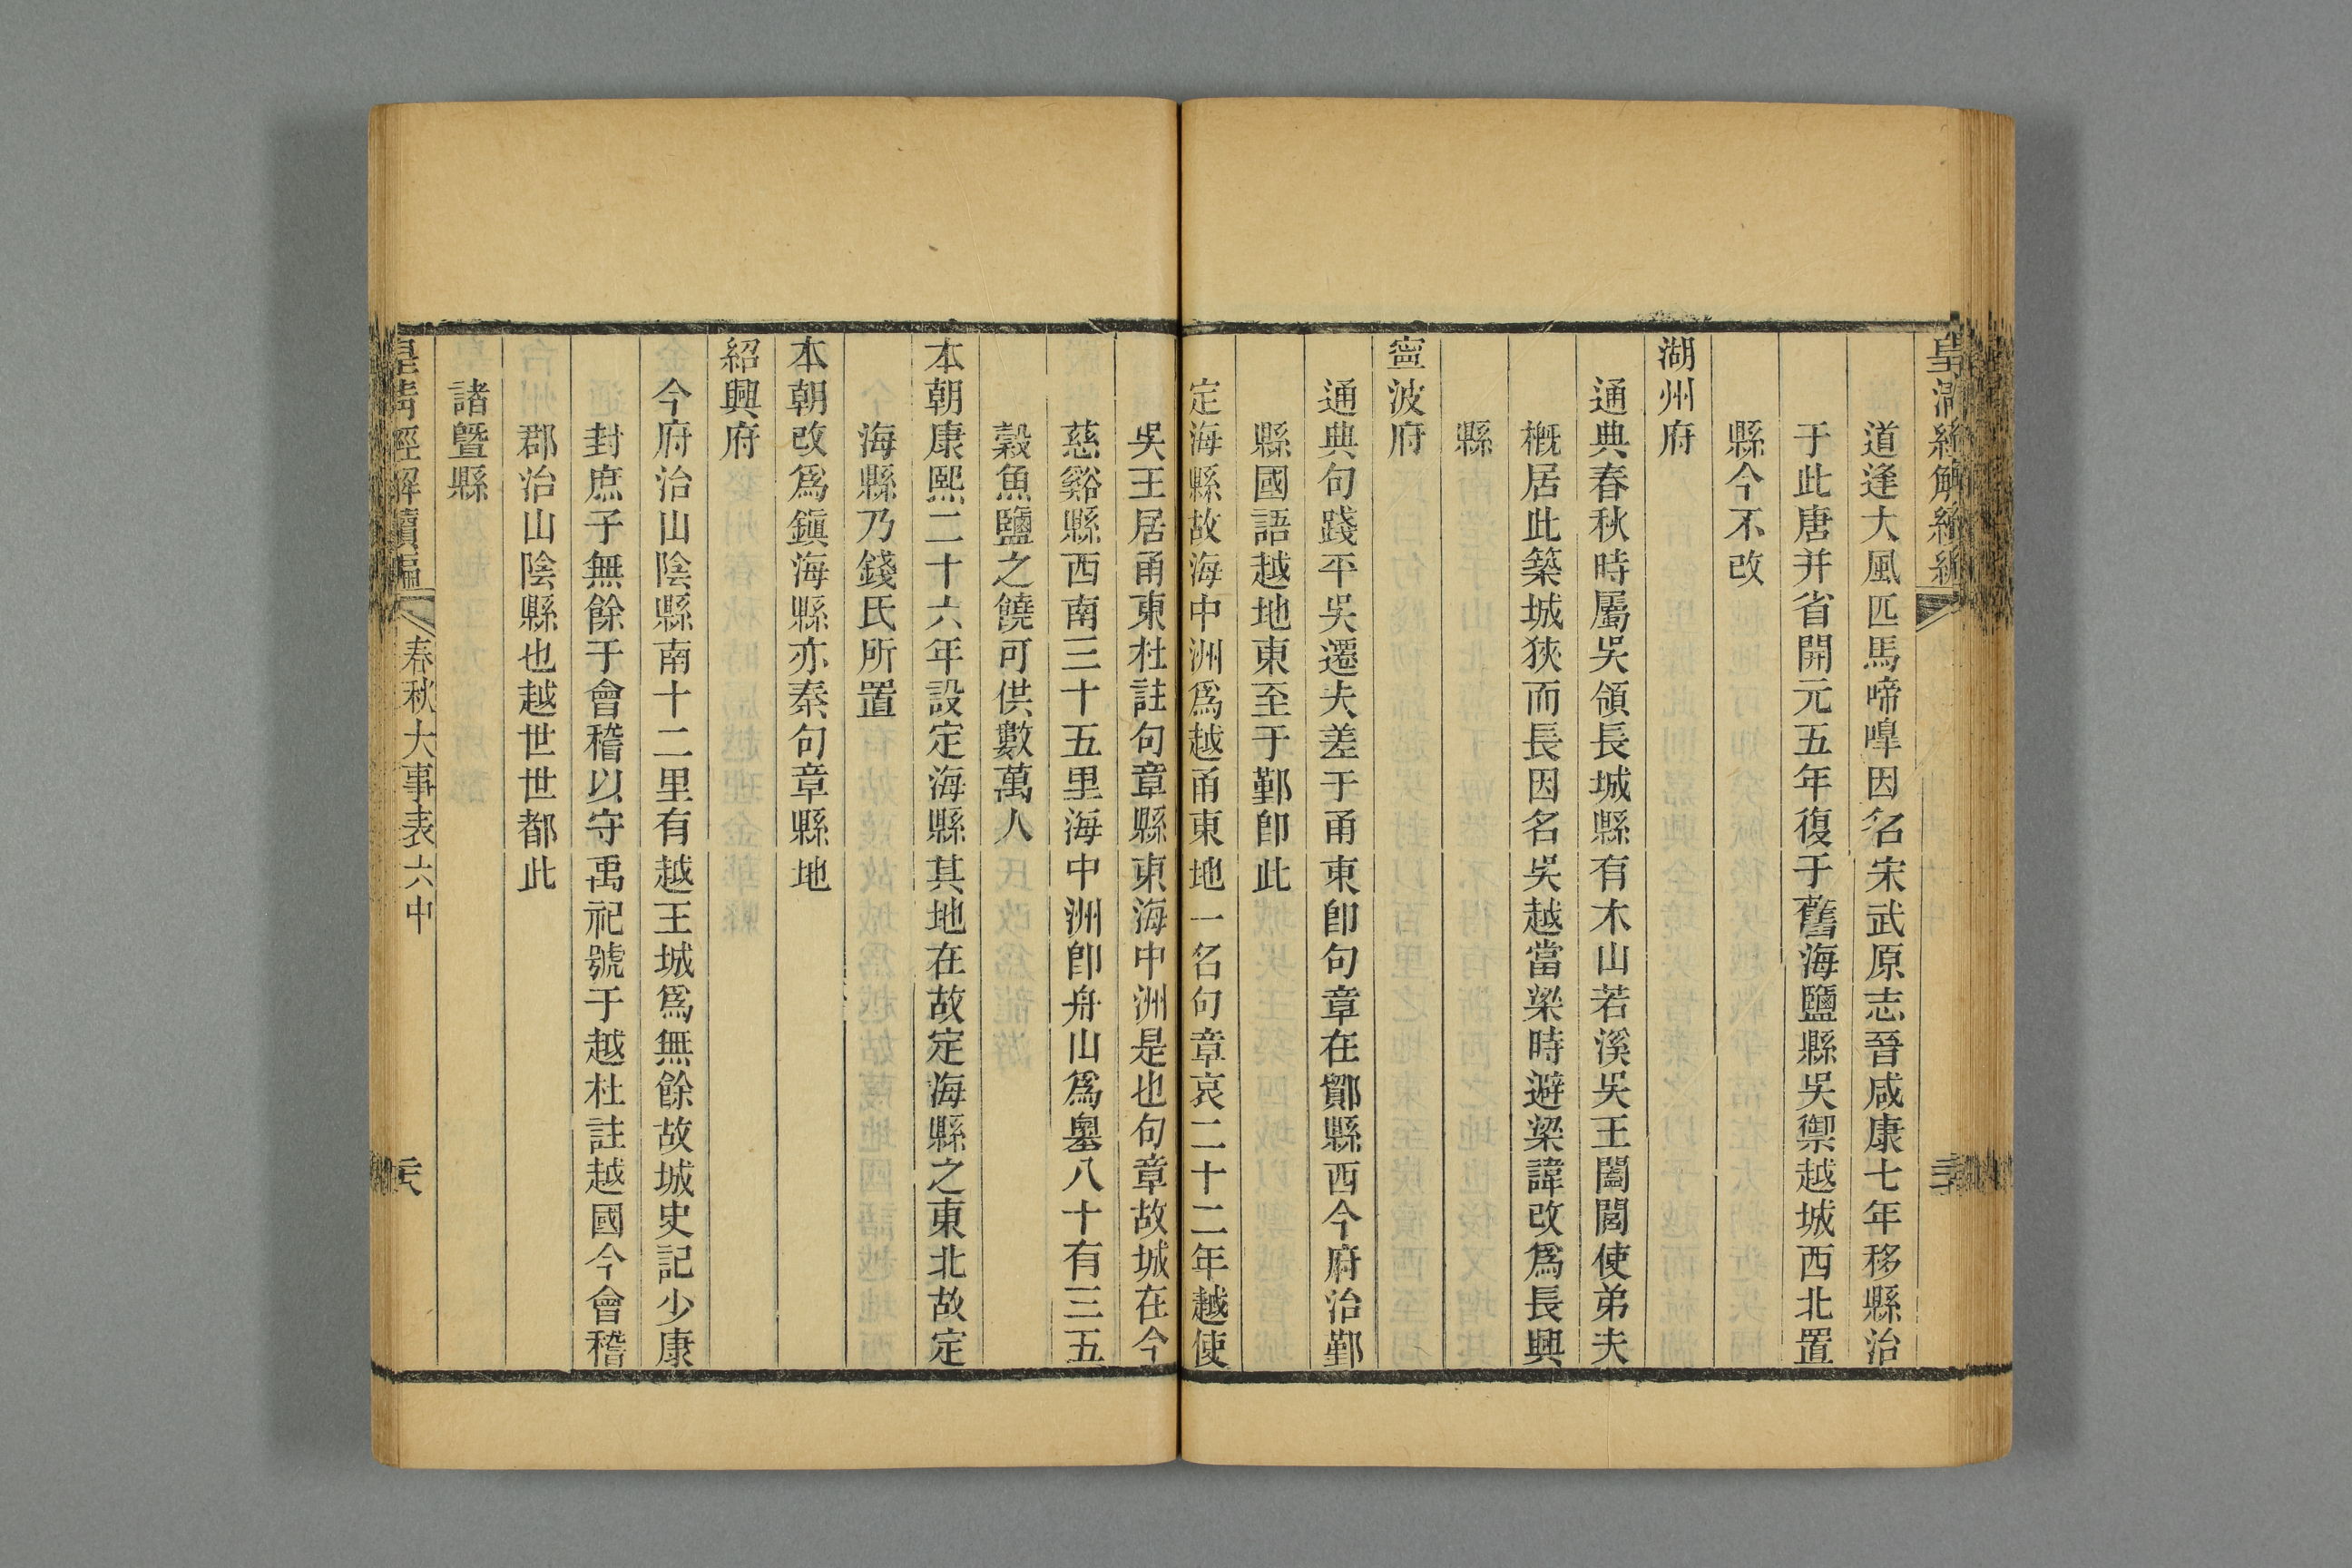 道逢大風匹馬啼嘷因名宋武原志晉咸康七年移縣治
于此唐并省開元五年復于舊海鹽縣吳禦越城西北置
縣今不改
湖州府
通典春秋時屬吳領長城縣有木山若溪吳王闔閭使弟夫
槪居此築城狹而長因名吳越當梁時避梁諱改爲長興
縣
寍波府
通典句踐平吳遷夫差于甬東卽句章在鄮縣西今府治鄞
縣國語越地東至于鄞卽此
定海縣故海中洲爲越甬東地一名句章哀二十二年越使
吳王居甬東杜註句章縣東海中洲是也句章故城在今
慈谿縣西南三十五里海中洲卽舟山爲嶴八十有三五
穀魚鹽之饒可供數萬人
本朝康熙二十六年設定海縣其地在故定海縣之東北故定
海縣乃錢氏所置
本朝改爲鎭海縣亦秦句章縣地
紹興府
今府治山陰縣南十二里有越王城爲無餘故城史記少康
封庶子無餘于會稽以守禹祀號于越杜註越國今會稽
郡治山陰縣也越世世都此
諸曁縣
皇清經解續編 春秋大事表六中